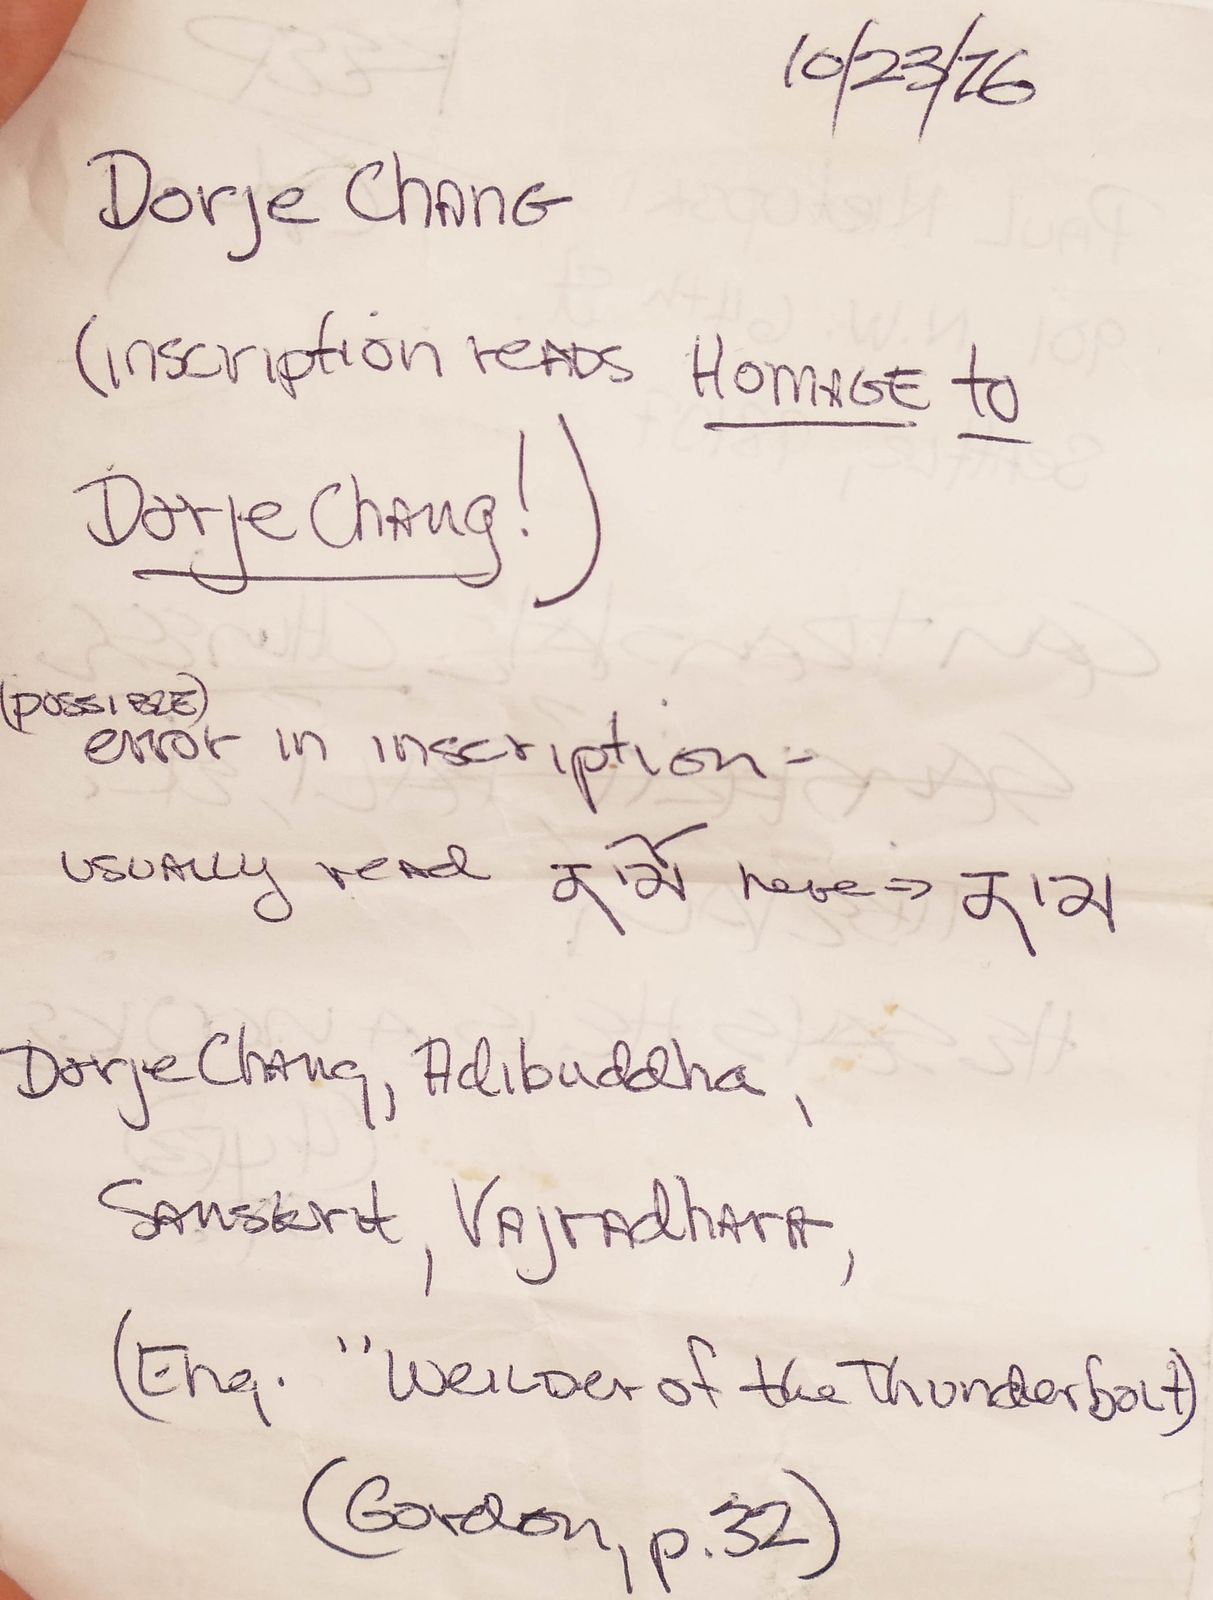 10/23/76
Dorje Chang
(inscription reads Homage to
Dorje Chang!)
(possible)
error in inscription-
usually read here ⇒
Dorje Chang, Adibuddha,
Sanskrit, Vajradhara,
(Eng. "Weilder of the Thunderbolt)
(Gordon, p.32)